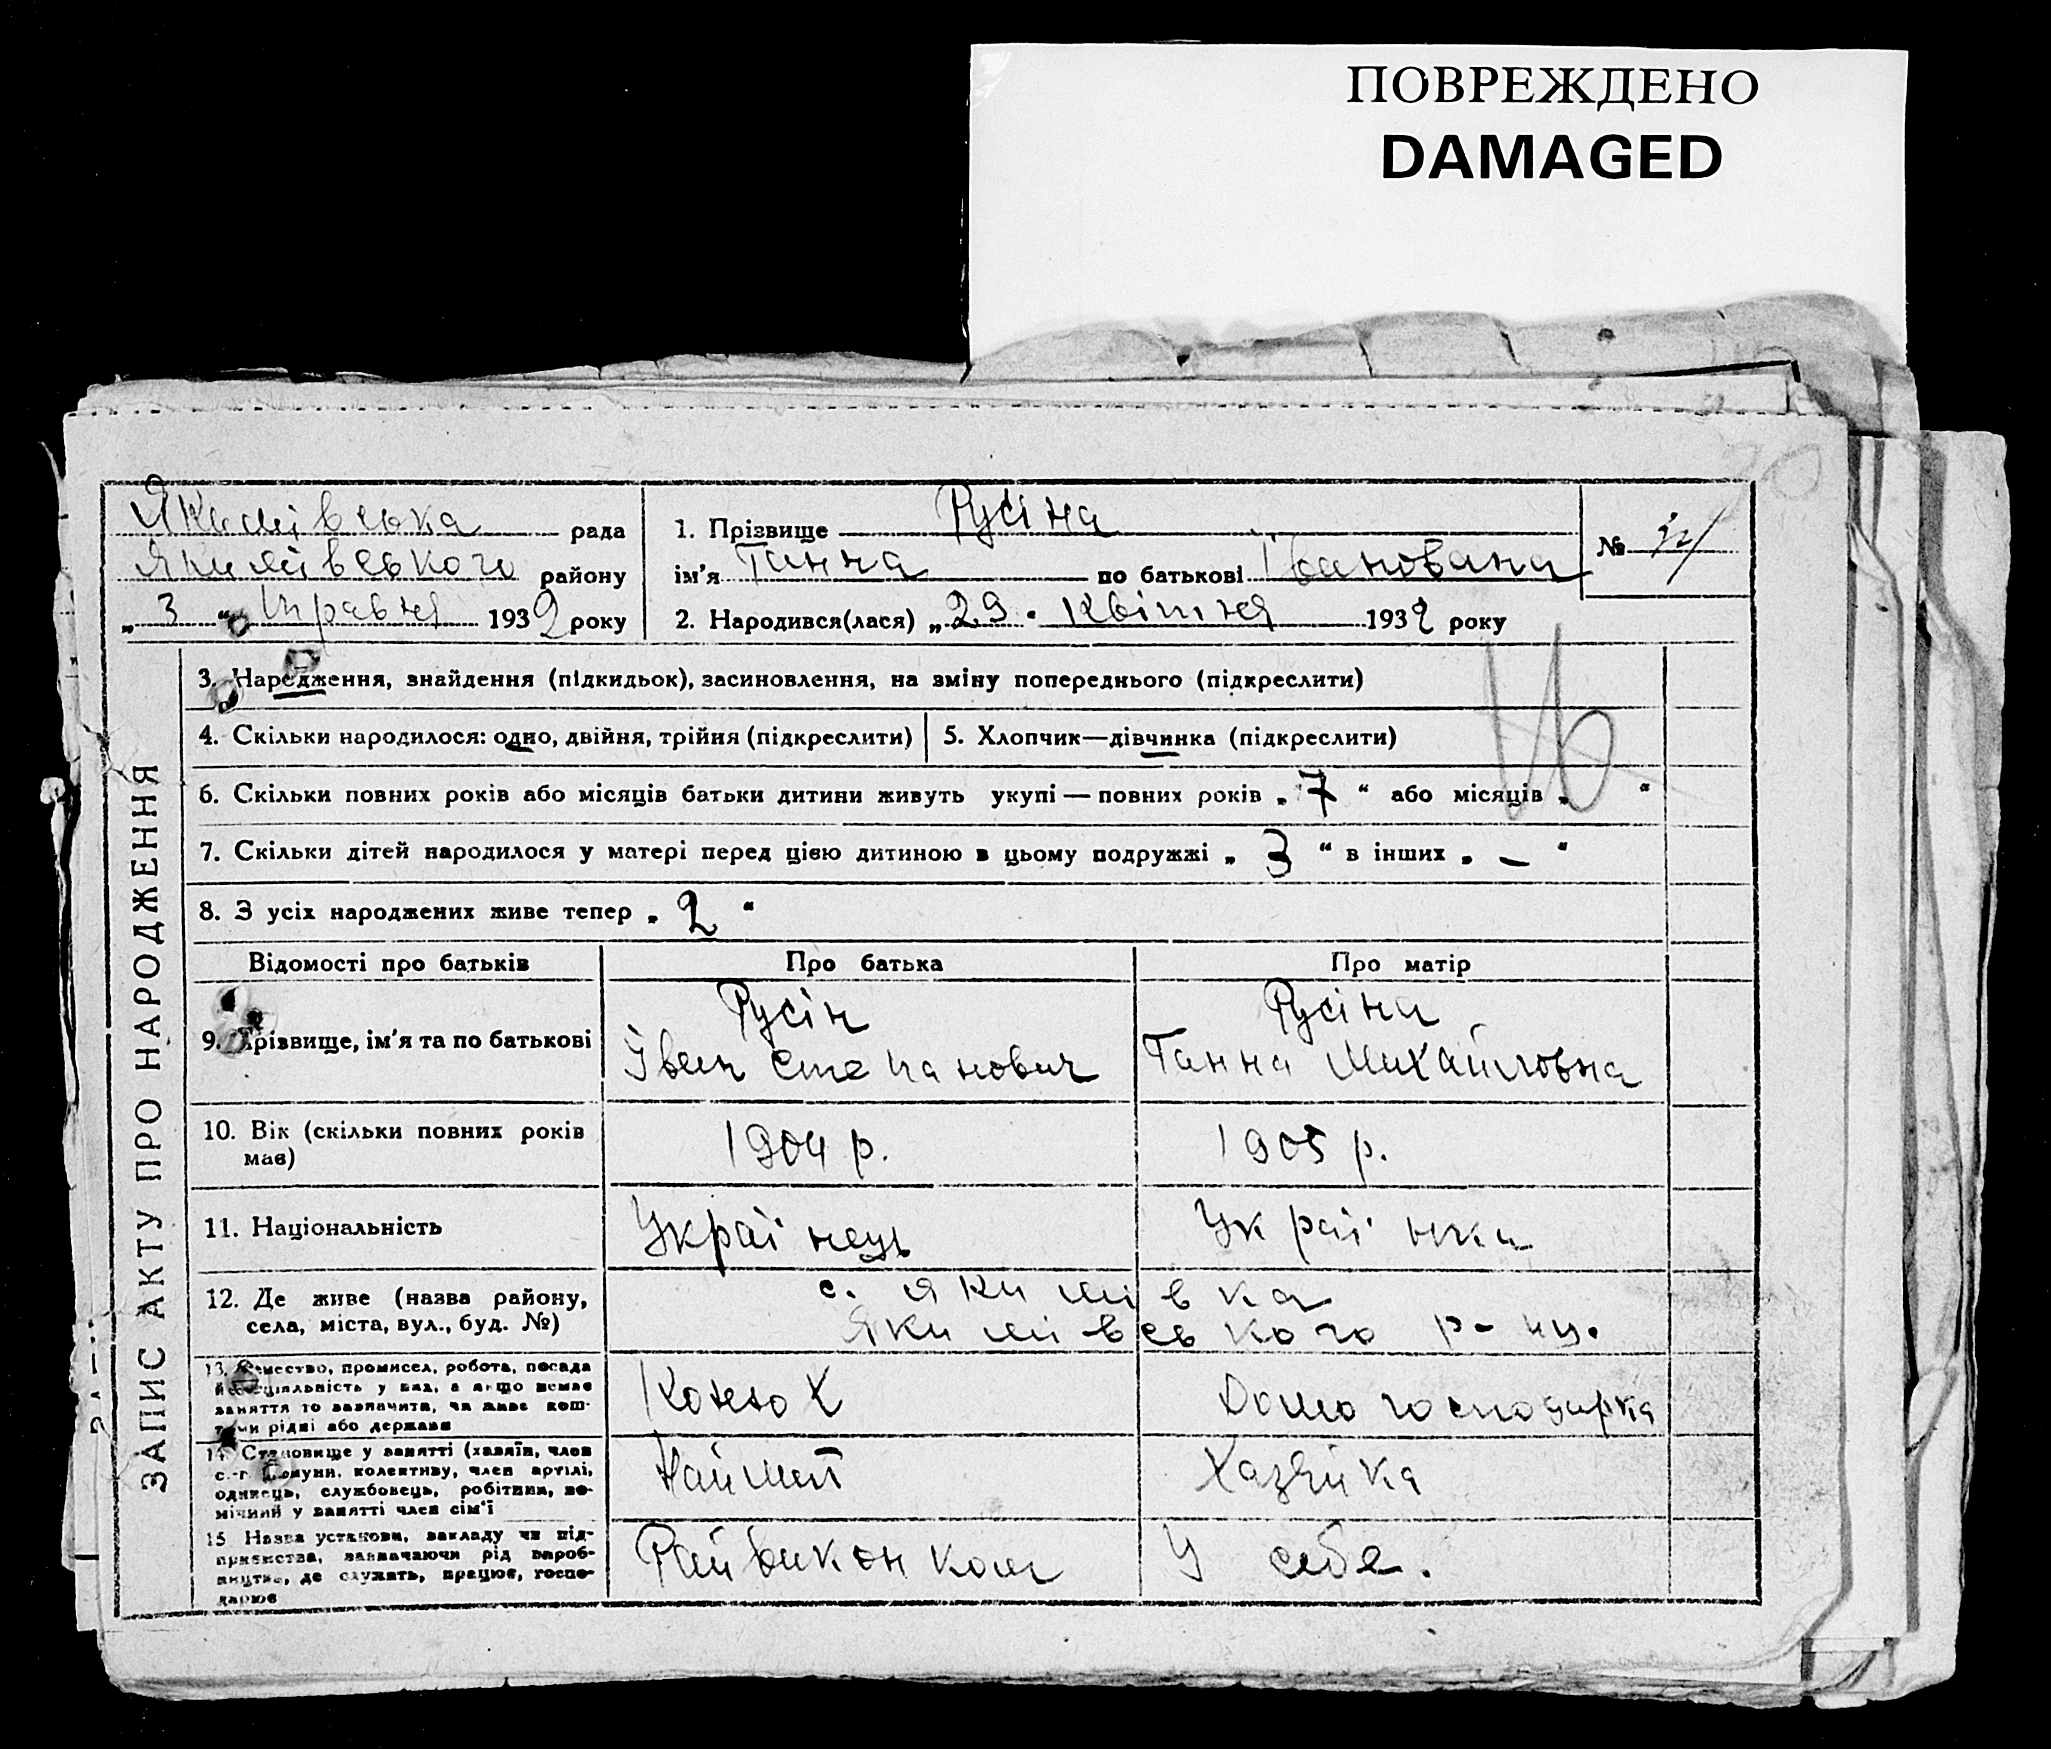 ПОВРЕЖДЕНО
DAMAGED
Якимівська рада
Якимівського району
„ 3 “ травня 1932 року
1. Прізвище Русіна
ім'я Ганна по батькові Іванована
№
2. Народився(лася) „ 29 . квітня 1932 року
ЗАПИС АКТУ ПРО НАРОДЖЕННЯ
3. Народження, знайдення (підкидьок), засиновлення, на зміну попереднього (підкреслити)
4. Скільки народилося: одно, двійня, трійня (підкреслити)
5. Хлопчик—дівчинка (підкреслити)
6. Скільки повних років або місяців батьки дитини живуть укупі — повних років „ 7 “ або місяців „ “
7. Скільки дітей народилося у матері перед цією дитиною в цьому подружжі „ 3 “ в інших „ – “
8. З усіх народжених живе тепер „ 2 “
Відомості про батьків
Про батька
Про матір
9. Прізвище, ім'я та по батькові
Русін
Іван Степанович
Русіна
Ганна Михайловна
10. Вік (скільки повних років
має)
1904 р.
1905 р.
11. Національність
Українець
Українка
12. Де живе (назва району,
села, міста, вул., буд. №)
с. Якимівка
Якимівського р-ну.
13. Ремество, промисел, робота, посада
й спеціяльність у них, а якщо немає
заняття то зазначити, чи живе кош-
тами рідні або держави
Конюх
Домогосподарка
14. Становище у занятті (хазяїн, член
с.-г. комуни, колективу, член артілі,
одинець, службовець, робітник, по-
мічний у занятті член сім'ї
Наймит
Хазяйка
15 Назва установи, закладу чи під-
приємства, зазначаючи рід вироб-
ництва, де служать, працює, госпо-
дарює
Райвиконком
У себе.